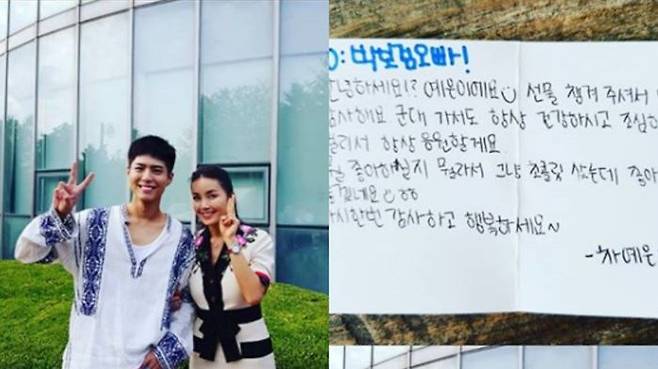 TO: 박보검오빠!
안녕하세요!? 예은이에요 선물 챙겨 주셔서
감사해요 군대 가셔도 항상 건강하시고 조심하
멀리서 항상 응원할게요
뭘 좋아하실지 몰라서 그냥 초콜릿 샀는데 좋아
좋겠네요 ㅎㅎ
다시한번 감사하고 행복하세요~
-차예은